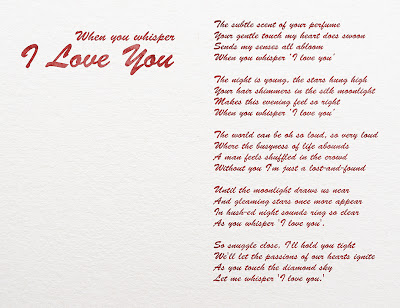 When you whisper
I Love You
The subtle scent of your perfume
Your gentle touch my heart does swoon
Sends my senses all abloom
When you whisper 'I love you'
The night is young, the stars hung high
Your hair shimmers in the silk moonlight
Makes this evening feel so right
When you whisper 'I love you'
The world can be oh so loud, so very loud
Where the busyness of life abounds
A man feels shuffled in the crowd
Without you I'm just a lost-and-found
Until the moonlight draws us near
And gleaming stars once more appear
In hush-ed night sounds ring so clear
As you whisper 'I love you'.
So snuggle close, I'll hold you tight
We'll let the passions of our hearts ignite
As you touch the diamond sky
Let me whisper 'I love you.'